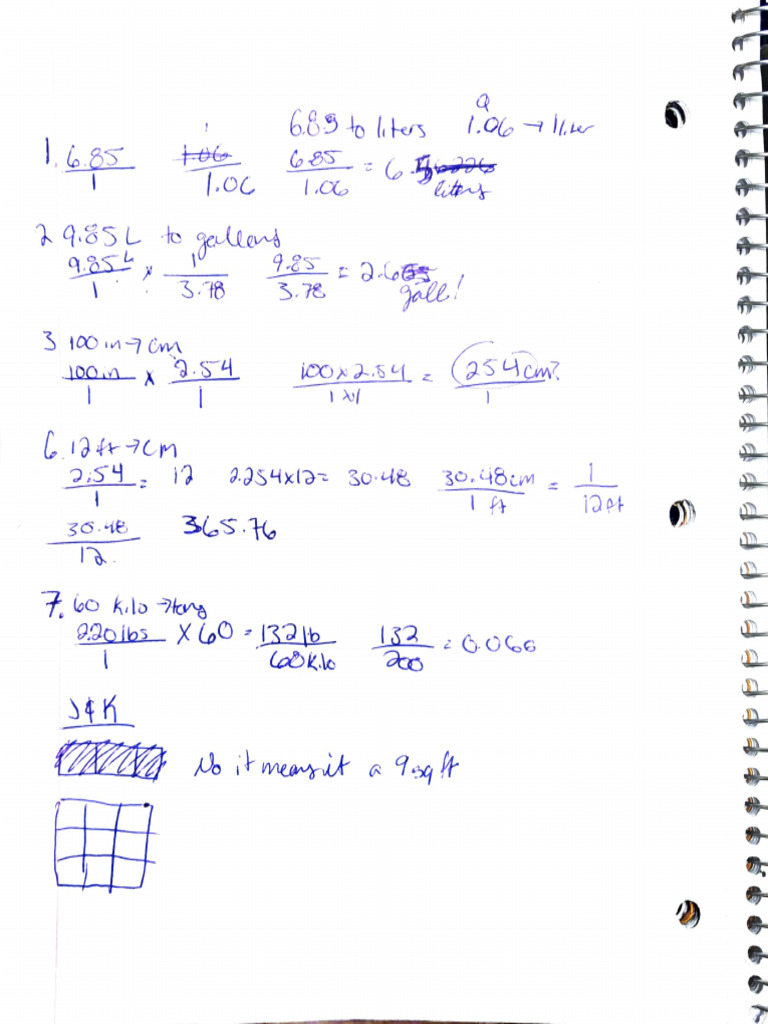 6.85 to liters Q 1.06 → 1 liter
1. 6.85/1 1/1.06 6.85/1.06 = 6.5 liters
2 9.85 L to gallons
9.85 L/1 × 1/3.78 9.85/3.78 = 2.6 gall!
3 100 in → cm
100 in/1 × 2.54/1 100 x 2.54/1 x 1 = 254 cm?/1
6. 12 ft → cm
2.54/1 = 12 2.254 x 12 = 30.48 30.48 cm/1 ft = 1/12 ft
30.48/12. 365.76
7. 60 kilo → tons
2.20 lbs/1 × 60 = 132 lb/60 kilo 132/200 = 0.066
J & K
No it means it a 9 sq ft